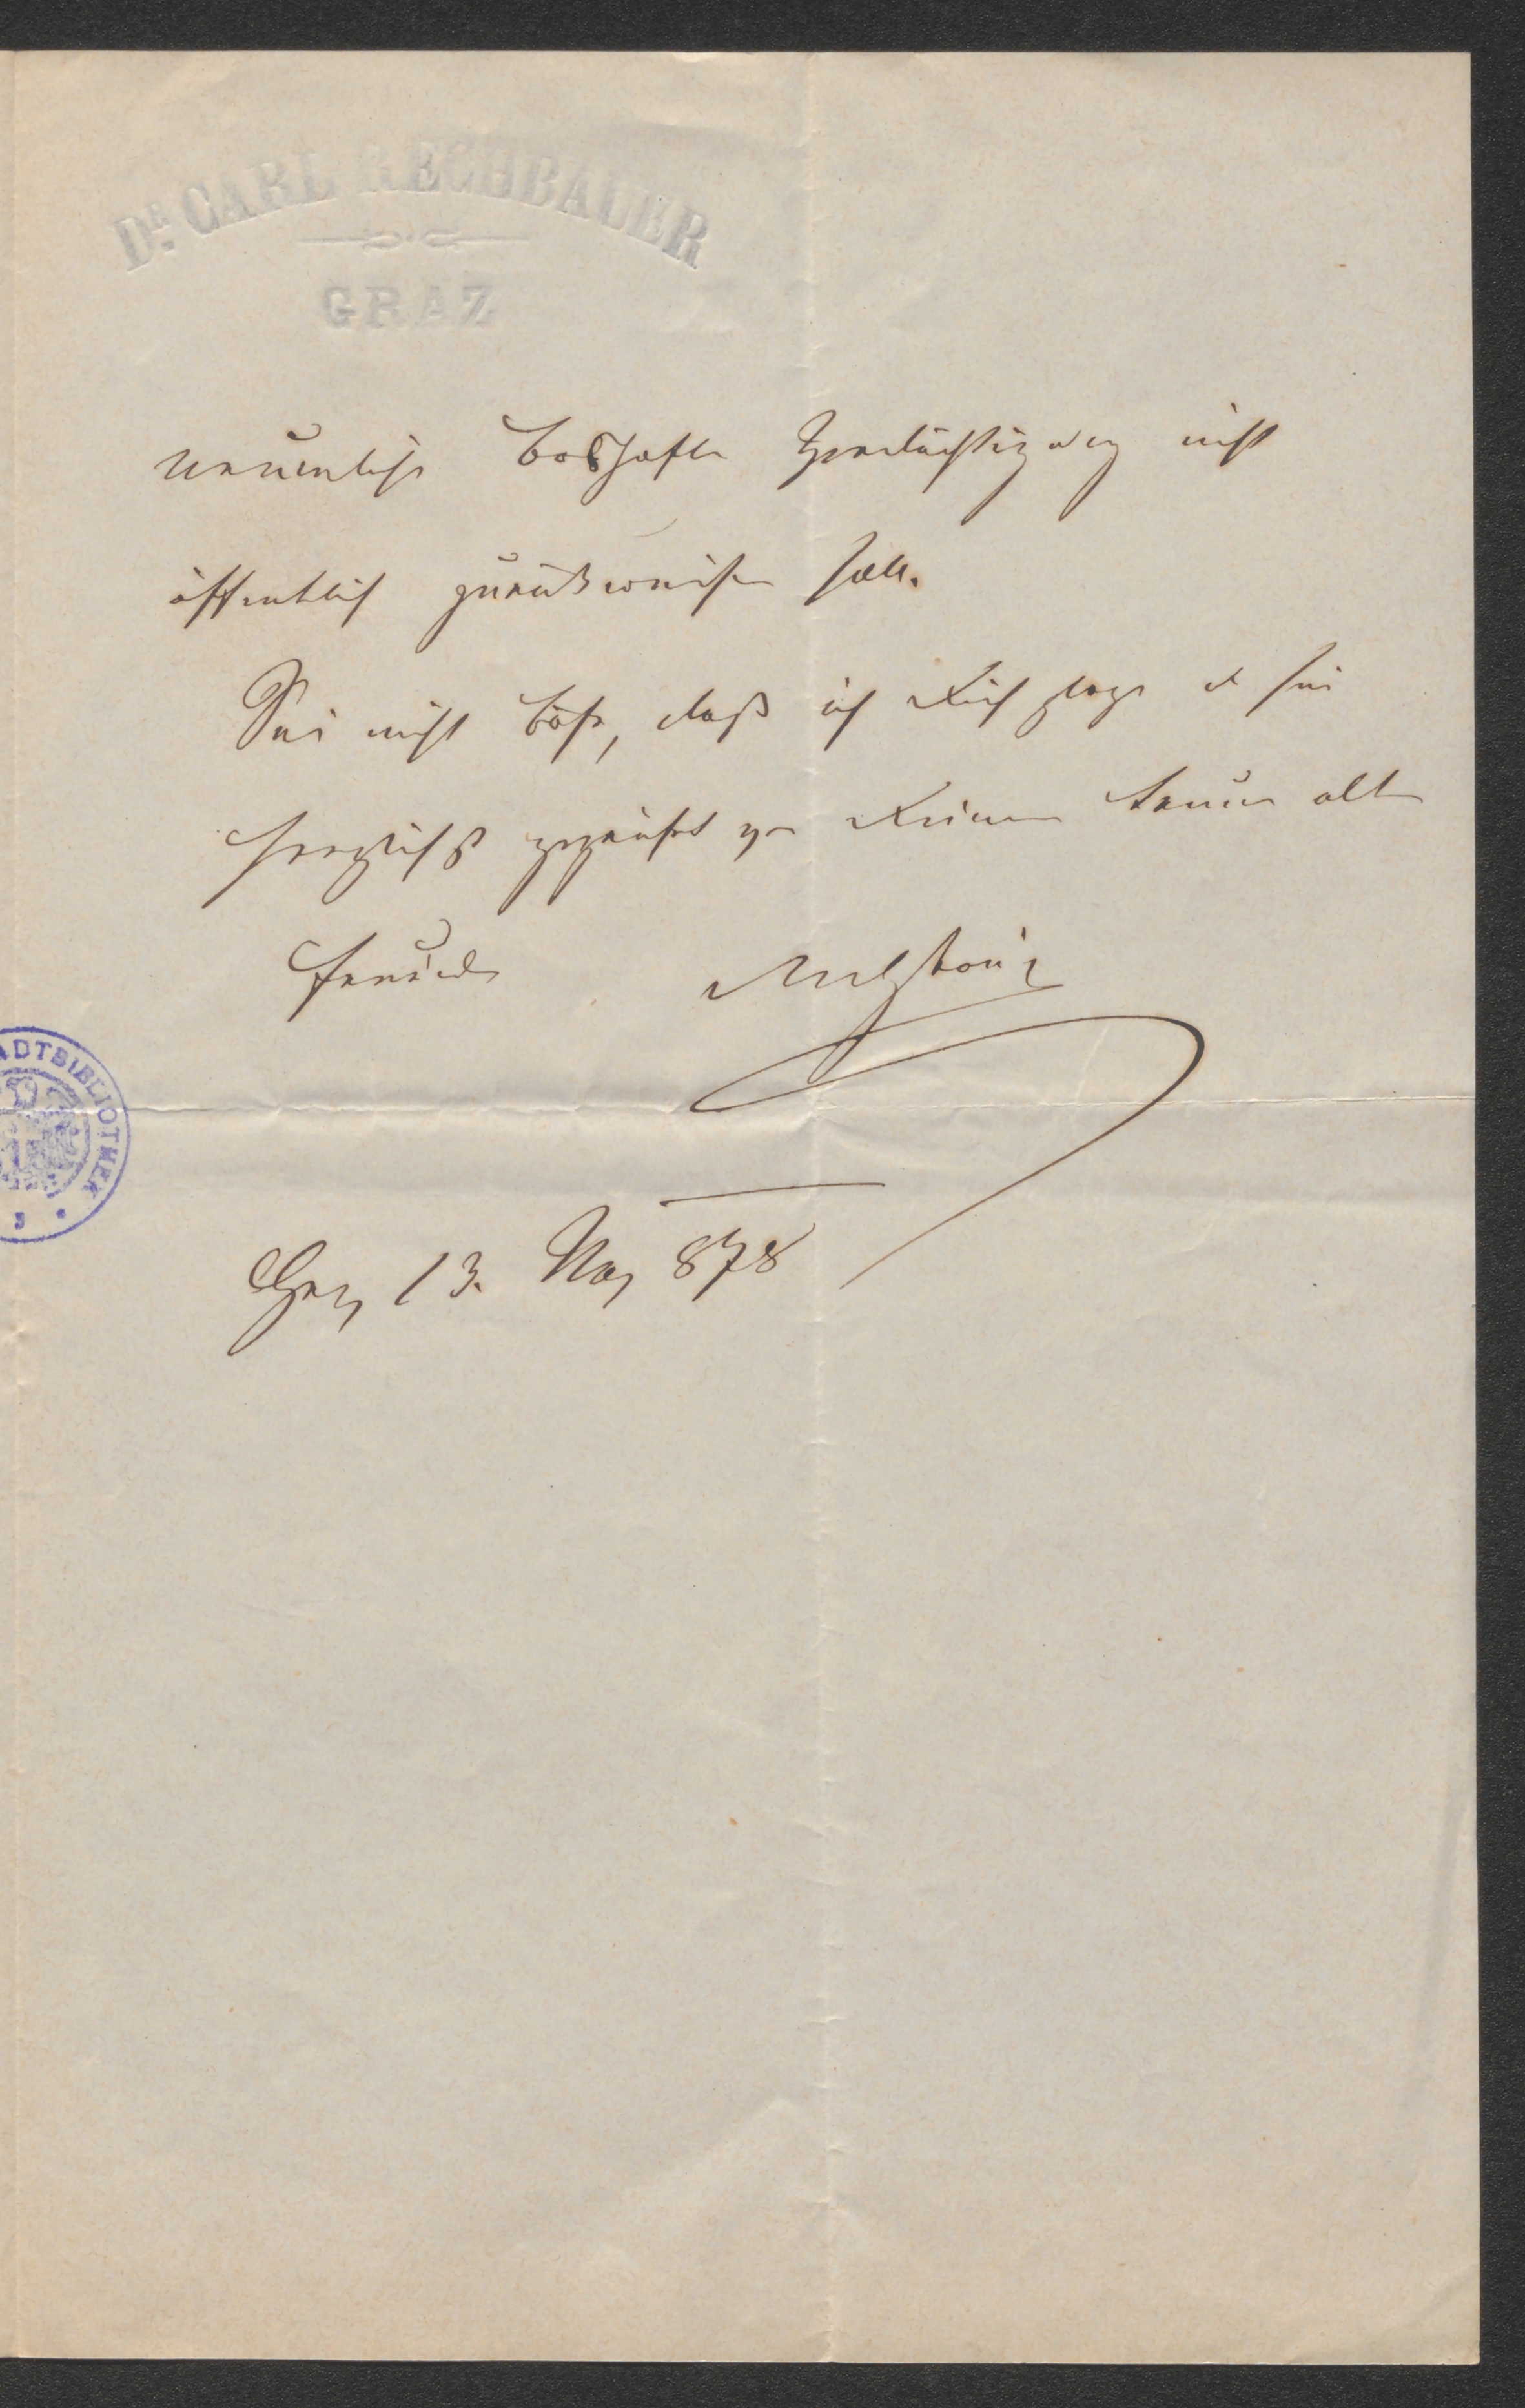 DR. CARL RECHBAUER
GRAZ
neuerliche boshafte Verdächtigung nicht
öffentlich zurückweisen soll.
Sei nicht böse, daß ich Dich plage u sei
herzlichst gegrüßt von Deinem treuen alten
Freunde Rechbauer
ADTBIBLIOTHEK
Graz 13. Nov 878